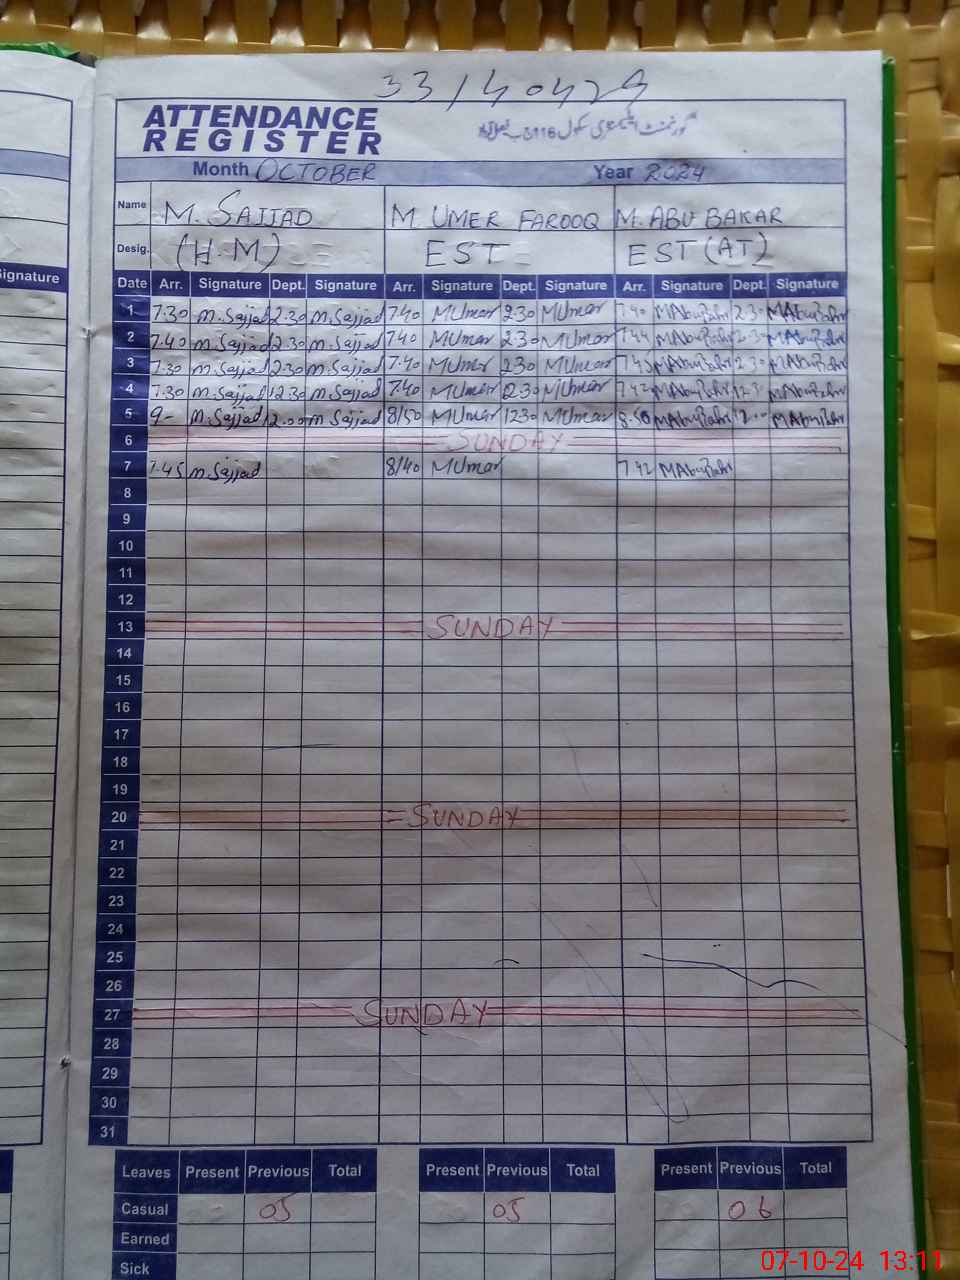 33140429
ATTENDANCE
REGISTER
گورنمنٹ ایلیمنٹری سکول 116
Month OCTOBER Year 2024
Name M. SAJJAD M UMER FAROOQ M. ABU BAKAR
Desig. (H.M) EST EST (AT)
Signature
Date Arr. Signature Dept. Signature Arr. Signature Dept. Signature Arr. Signature Dept. Signature
1 7.30 M.Sajjad 2.30 M.Sajjad 7.40 MUmar 2.30 MUmar 7.40 MAbuBakr 2.30 MAbuBakr
2 7.40 M.Sajjad 2.30 M.Sajjad 7.40 MUmar 2.30 MUmar 7.44 MAbuBakr 2.30 MAbuBakr
3 7.30 M.Sajjad 2.30 M.Sajjad 7.40 MUmar 2.30 MUmar 7.45 MAbuBakr 2.30 MAbuBakr
4 7.30 M.Sajjad 12.30 M.Sajjad 7.40 MUmar 12.30 MUmar 7.42 MAbuBakr 12.30 MAbuBakr
5 9- M.Sajjad 12.00 M.Sajjad 8/50 MUmar 1230 MUmar 8.50 MAbuBakr 12.00 MAbuBakr
6 SUNDAY
7 7.45 M.Sajjad 8/40 MUmar 7.42 MAbuBakr
8
9
10
11
12
13 SUNDAY
14
15
16
17
18
19
20 SUNDAY
21
22
23
24
25
26
27 SUNDAY
28
29
30
31
Leaves Present Previous Total Present Previous Total Present Previous Total
Casual 05 05 06
Earned
Sick
07-10-24 13:11